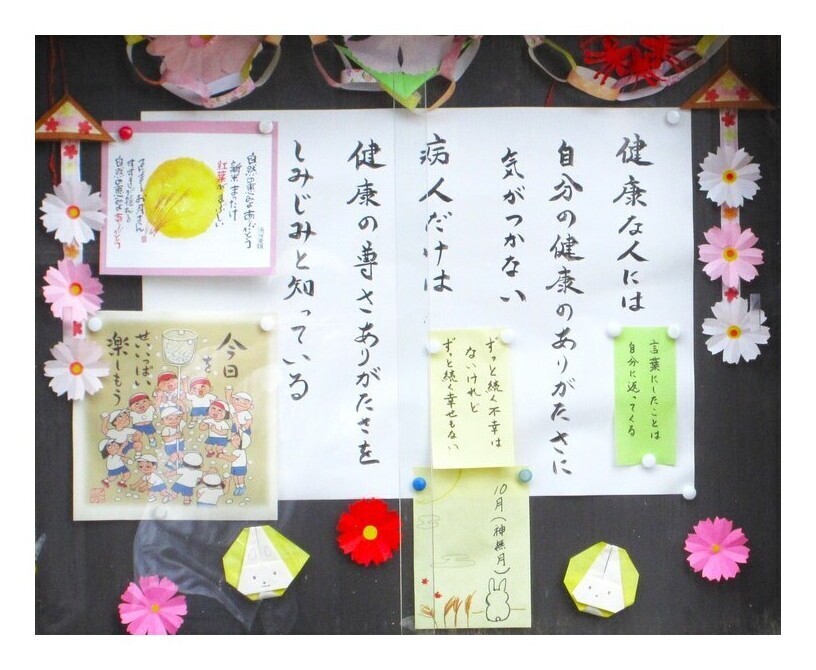 健康な人には
自分の健康のありがたさに
気がつかない
病人だけは
健康の尊さありがたさを
しみじみと知っている
言葉にしたことは
自分に返ってくる
ずっと続く不幸は
ないけれど
ずっと続く幸せもない
10月(神無月)
自然の恵みありがとう
新米まつたけ
紅葉がまぶしい
お月さん
すすきが揺れる
自然の恵みよありがとう
今日を
せいいっぱい
楽しもう